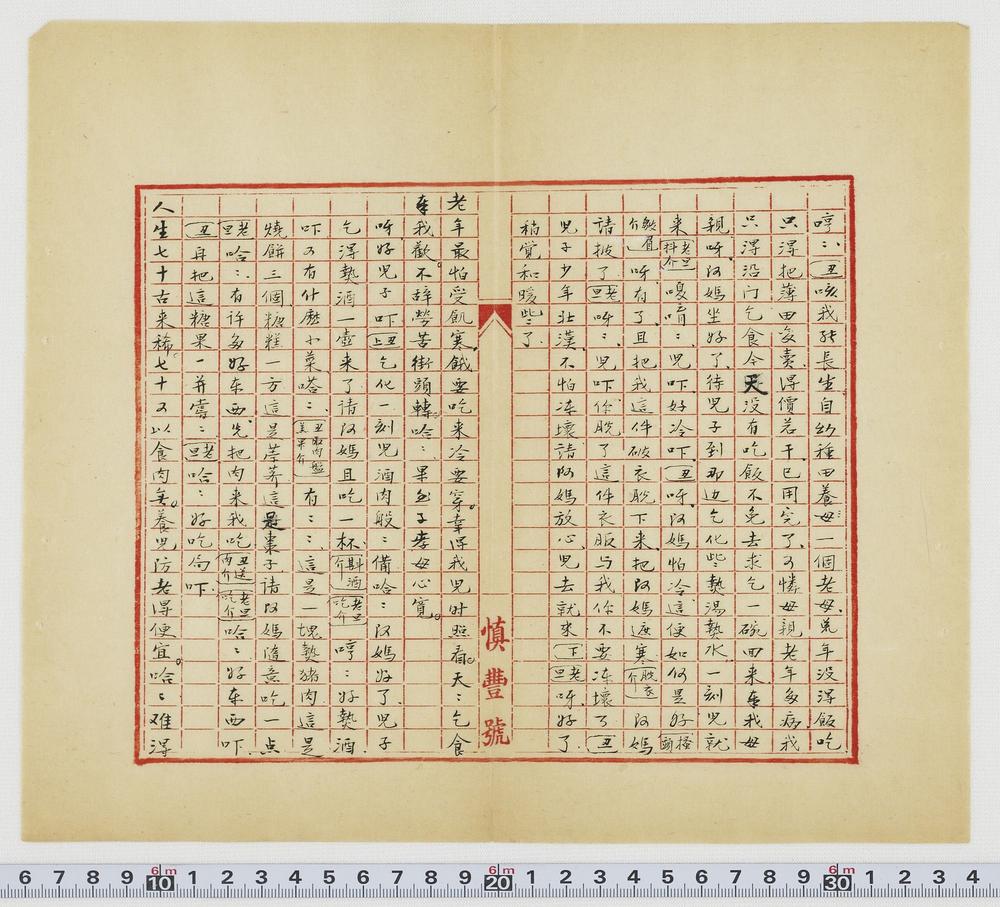 哼〻丑咳我能長生自幼種田養母一個老母荒年没得飯吃
只得把薄田変賣得價若干已用完了可憐母親老年多病我
只得沿门乞食今天没有吃飯不免去求乞一碗回来我母
親呀阿媽坐好了待兒子到那边乞化些熱湯熱水一刻兒就
来老旦抖介嗄唷〻兒吓好冷吓丑呀阿媽怕冷這便如何是好
介呀有了且把我這件破衣脱下来把阿媽遮寒脱衣介阿媽
請披了老旦呀〻兒吓你脱了這件衣服与我你不要冻壞了丑
兒子少年壮漢不怕冻壞請阿媽放心兒去就来下老旦呀好了
稍覚和暖些了
慎豐號
老年最怕受飢寒餓要吃来冷要穿幸得我兒时照看天〻乞食
我歡不辞勞苦街頭轉哈〻果色子孝母心寬
呀好兒子吓丑上乞化一刻兒酒肉般〻備哈〻阿媽好了兒子
乞得熱酒一壺来了請阿媽且吃一杯斟酒介老旦吃介哼〻好熱酒
吓可有什麽小菜嗒〻丑取肉盤介有〻〻這是一塊熱猪肉這是
燒餅三個糖糕一方這是荸荠這是棗子請阿媽隨意吃一点
老旦哈〻有许多好东西先把肉来我吃丑送肉介老旦吃介哈〻好东西吓
丑再把這糖果一并嘗〻老旦哈〻好吃局吓
人生七十古来稀七十不以食肉無養兒防老得便宜哈〻难得